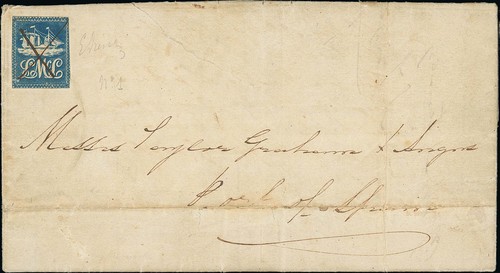 LMcL
No 1
Messrs Taylor Graham & Angus
Port of Spain